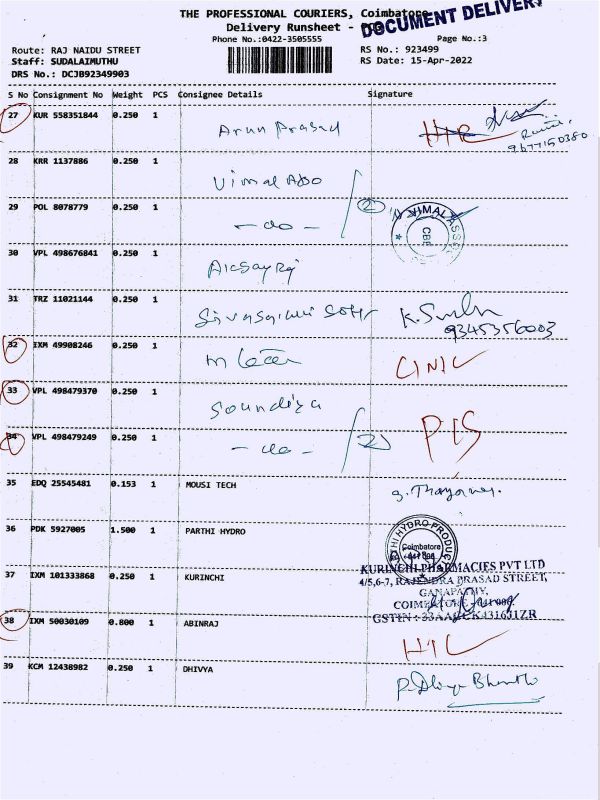 THE PROFESSIONAL COURIERS, Coimbatore
DOCUMENT DELIVERY
Delivery Runsheet -
Phone No.:0422-3505555 Page No.:3
Route: RAJ NAIDU STREET RS No.: 923499
Staff: SUDALAIMUTHU RS Date: 15-Apr-2022
DRS No.: DCJB92349903
S No Consignment No Weight PCS Consignee Details Signature
27 KUR 558351844 0.250 1 Arun Prasad
9677150380
28 KRR 1137886 0.250 1 Vimal
29 POL 8078779 0.250 1 - do - 2 VIMAL CBE
30 VPL 498676841 0.250 1
31 TRZ 11021144 0.250 1 K.
9345356003
32 IXM 49908246 0.250 1
33 VPL 498479370 0.250 1 Soundiya
34 VPL 498479249 0.250 1 - do - 2
35 EDQ 25545481 0.153 1 MOUSI TECH
36 PDK 5927005 1.500 1 PARTHI HYDRO HYDRO PRODUC Coimbatore
37 IXM 101333868 0.250 1 KURINCHI KURINCHI PHARMACIES PVT LTD
4/5,6-7, RAJENDRA PRASAD STREET,
GANAPATHY,
COIMBATORE
GSTIN :
38 IXM 50030109 0.800 1 ABINRAJ
39 KCM 12438982 0.250 1 DHIVYA